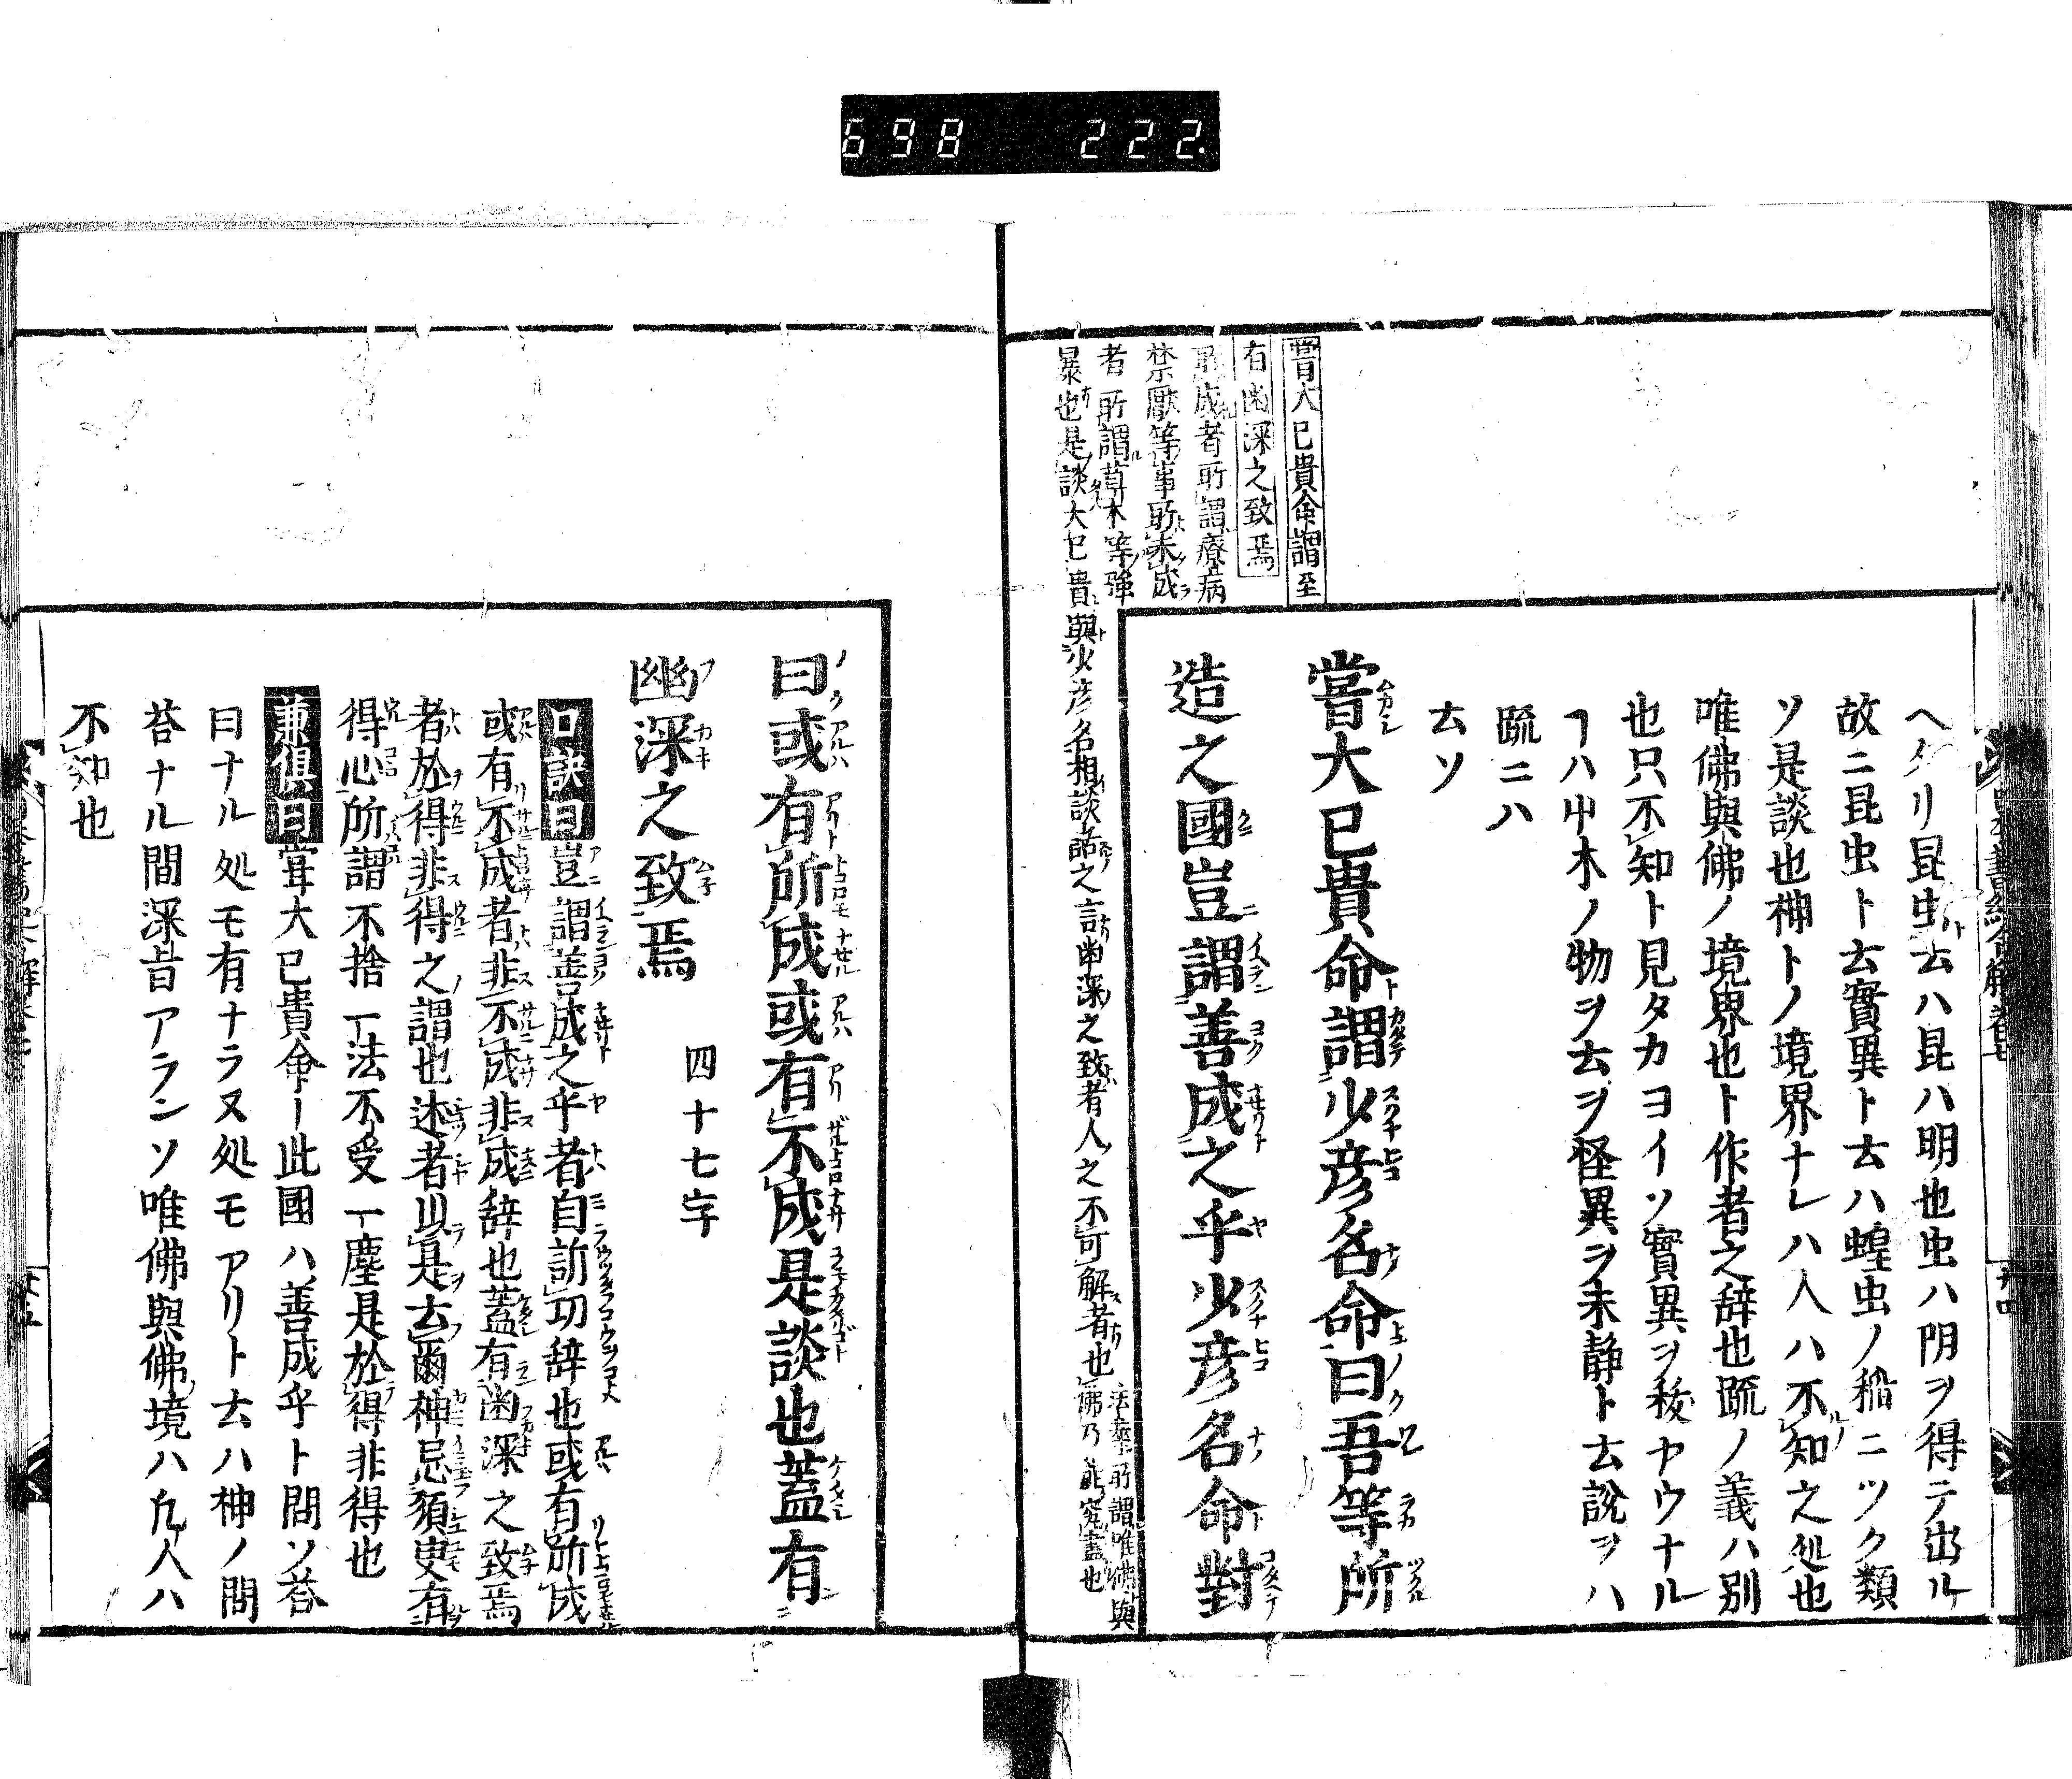 698 222.
嘗大已貴命謂至
有幽深之致焉
所成者所謂療病
禁厭等事所未成
者所謂草木等強
暴也是談大已貴與少彦名相談話之言幽深之致者人之不可解者也
法華所謂唯佛與
佛乃能究盡也
ヘタリ昆虫ト云ハ昆ハ明也虫ハ陰ヲ得テ出ル
故ニ昆虫ト云實異ト云ハ蝗虫ノ稲ニツク類
ソ是談也神トノ境界ナレハ人ハ不知之処也
唯佛與佛ノ境界也ト作者之辞也䟽ノ義ハ別
也只不知ト見タカヨイソ實異ヲ穣ヤウナル
ヿハ屮木ノ物ヲ云ヲ怪異ヲ未静ト云説ヲハ
䟽ニハ
云ソ
嘗大已貴命謂少彦名命曰吾等所
造之國豈謂善成之乎少彦名命對
曰或有所成或有不成是談也蓋有
幽深之致焉 四十七字
口訣曰豈謂善成之乎者自訢功辞也或有所成
或有不成者非不成非成辞也蓋有幽深之致焉
者於得非得之謂也述者以是去爾神忌須臾有
得心所謂不捨一法不受一塵是於得非得也
兼倶曰嘗大已貴命ー此國ハ善成乎ト問ソ荅
曰ナル処モ有ナラヌ処モアリト云ハ神ノ問
荅ナル間深旨アランソ唯佛與佛境ハ凢人ハ
不知也